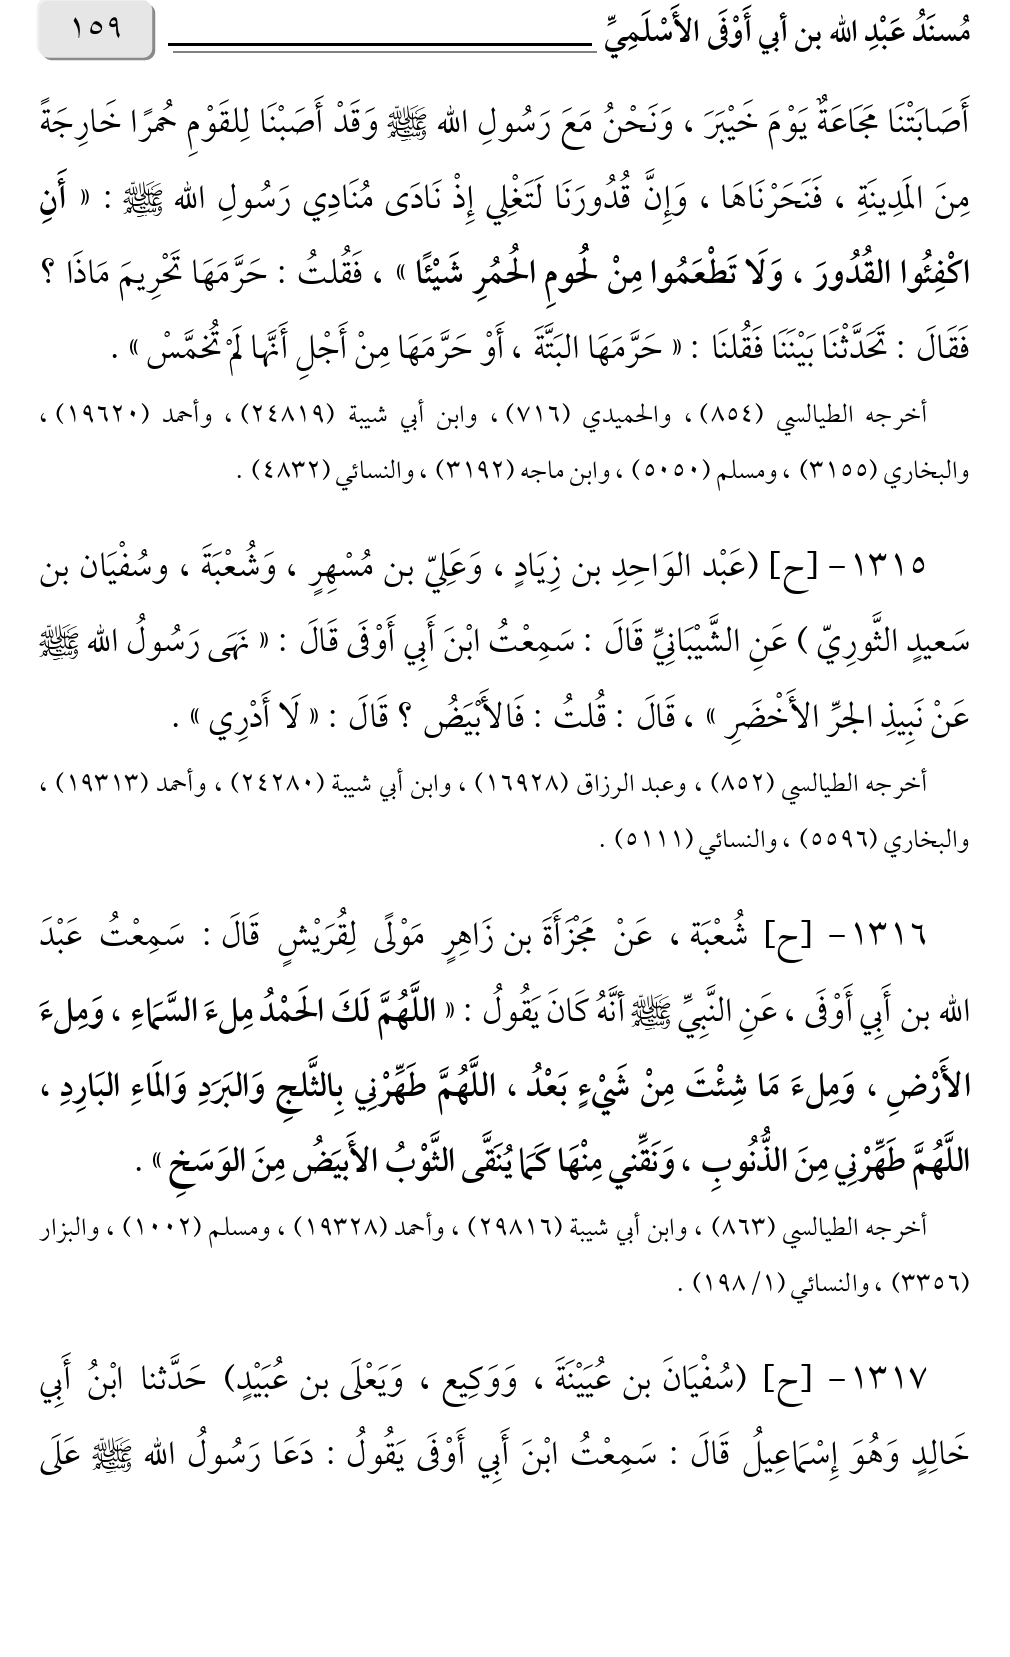 مُسنَدُ عَبْدِ الله بن أبي أَوْفَى الأَسْلَمِيِّ ١٥٩
أَصَابَتْنَا مَجَاعَةٌ يَوْمَ خَيْبَرَ ، وَنَحْنُ مَعَ رَسُولِ الله ﷺ وَقَدْ أَصَبْنَا لِلقَوْمِ حُمرًا خَارِجَةً
مِنَ المَدِينَةِ ، فَنَحَرْنَاهَا ، وَإِنَّ قُدُورَنَا لَتَغْلِي إِذْ نَادَى مُنَادِي رَسُولِ الله ﷺ : « أَنِ
اكْفِئُوا القُدُورَ ، وَلَا تَطْعَمُوا مِنْ لُحُومِ الحُمُرِ شَيْئًا » ، فَقُلتُ : حَرَّمَهَا تَحْرِيمَ مَاذَا ؟
فَقَالَ : تَحَدَّثْنَا بَيْنَنَا فَقُلنَا : « حَرَّمَهَا البَتَّةَ ، أَوْ حَرَّمَهَا مِنْ أَجْلِ أَنَّهَا لَمْ تُخمَّسْ » .
أخرجه الطيالسي (٨٥٤) ، والحميدي (٧١٦) ، وابن أبي شيبة (٢٤٨١٩) ، وأحمد (١٩٦٢٠) ،
والبخاري (٣١٥٥) ، ومسلم (٥٠٥٠) ، وابن ماجه (٣١٩٢) ، والنسائي (٤٨٣٢) .
١٣١٥- [ح] (عَبْد الوَاحِدِ بن زِيَادٍ ، وَعَلِيّ بن مُسْهِرٍ ، وَشُعْبَةَ ، وسُفْيَان بن
سَعيدٍ الثَّورِيّ ) عَنِ الشَّيْبَانِيِّ قَالَ : سَمِعْتُ ابْنَ أَبِي أَوْفَى قَالَ : « نَهَى رَسُولُ الله ﷺ
عَنْ نَبِيذِ الجرِّ الأَخْضَرِ » ، قَالَ : قُلتُ : فَالأَبْيَضُ ؟ قَالَ : « لَا أَدْرِي » .
أخرجه الطيالسي (٨٥٢) ، وعبد الرزاق (١٦٩٢٨) ، وابن أبي شيبة (٢٤٢٨٠) ، وأحمد (١٩٣١٣) ،
والبخاري (٥٥٩٦) ، والنسائي (٥١١١) .
١٣١٦- [ح] شُعْبَة ، عَنْ مَجْزَأَةَ بن زَاهِرٍ مَوْلًى لِقُرَيْشٍ قَالَ : سَمِعْتُ عَبْدَ
الله بن أَبِي أَوْفَى ، عَنِ النَّبِيِّ ﷺ أنَّهُ كَانَ يَقُولُ : « اللَّهُمَّ لَكَ الحَمْدُ مِلءَ السَّمَاءِ ، وَمِلءَ
الأَرْضِ ، وَمِلءَ مَا شِئْتَ مِنْ شَيْءٍ بَعْدُ ، اللَّهُمَّ طَهِّرْنِي بِالثَّلجِ وَالبَرَدِ وَالمَاءِ البَارِدِ ،
اللَّهُمَّ طَهِّرْنِي مِنَ الذُّنُوبِ ، وَنَقِّني مِنْهَا كَمَا يُنَقَّى الثَّوْبُ الأَبيَضُ مِنَ الوَسَخِ » .
أخرجه الطيالسي (٨٦٣) ، وابن أبي شيبة (٢٩٨١٦) ، وأحمد (١٩٣٢٨) ، ومسلم (١٠٠٢) ، والبزار
(٣٣٥٦) ، والنسائي (١/ ١٩٨) .
١٣١٧- [ح] (سُفْيَانَ بن عُيَيْنَةَ ، وَوَكِيع ، وَيَعْلَى بن عُبَيْدٍ) حَدَّثنا ابْنُ أَبِي
خَالِدٍ وَهُوَ إِسْمَاعِيلُ قَالَ : سَمِعْتُ ابْنَ أَبِي أَوْفَى يَقُولُ : دَعَا رَسُولُ الله ﷺ عَلَى